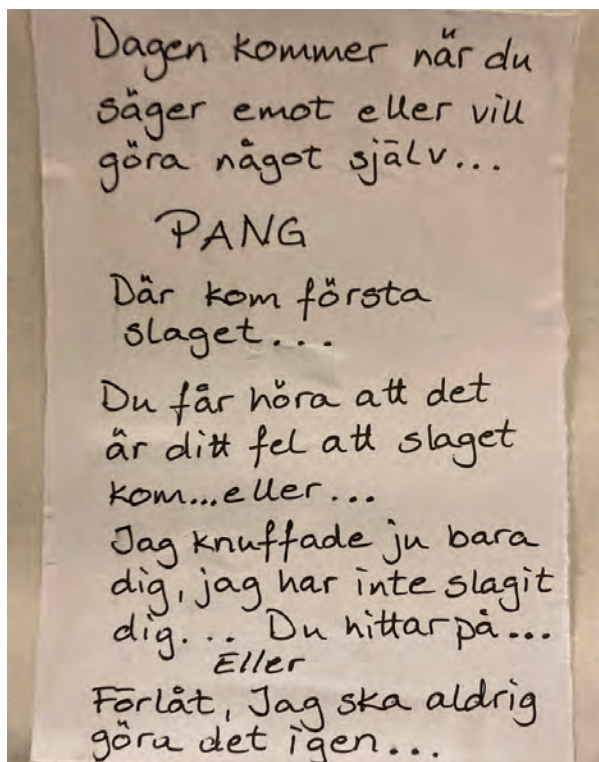 Dagen kommer när du
säger emot eller vill
göra något själv...
PANG
Där kom första
slaget...
Du får höra att det
är ditt fel att slaget
kom...eller...
Jag knuffade ju bara
dig, jag har inte slagit
dig... Du hittar på...
Eller
Förlåt, Jag ska aldrig
göra det igen...